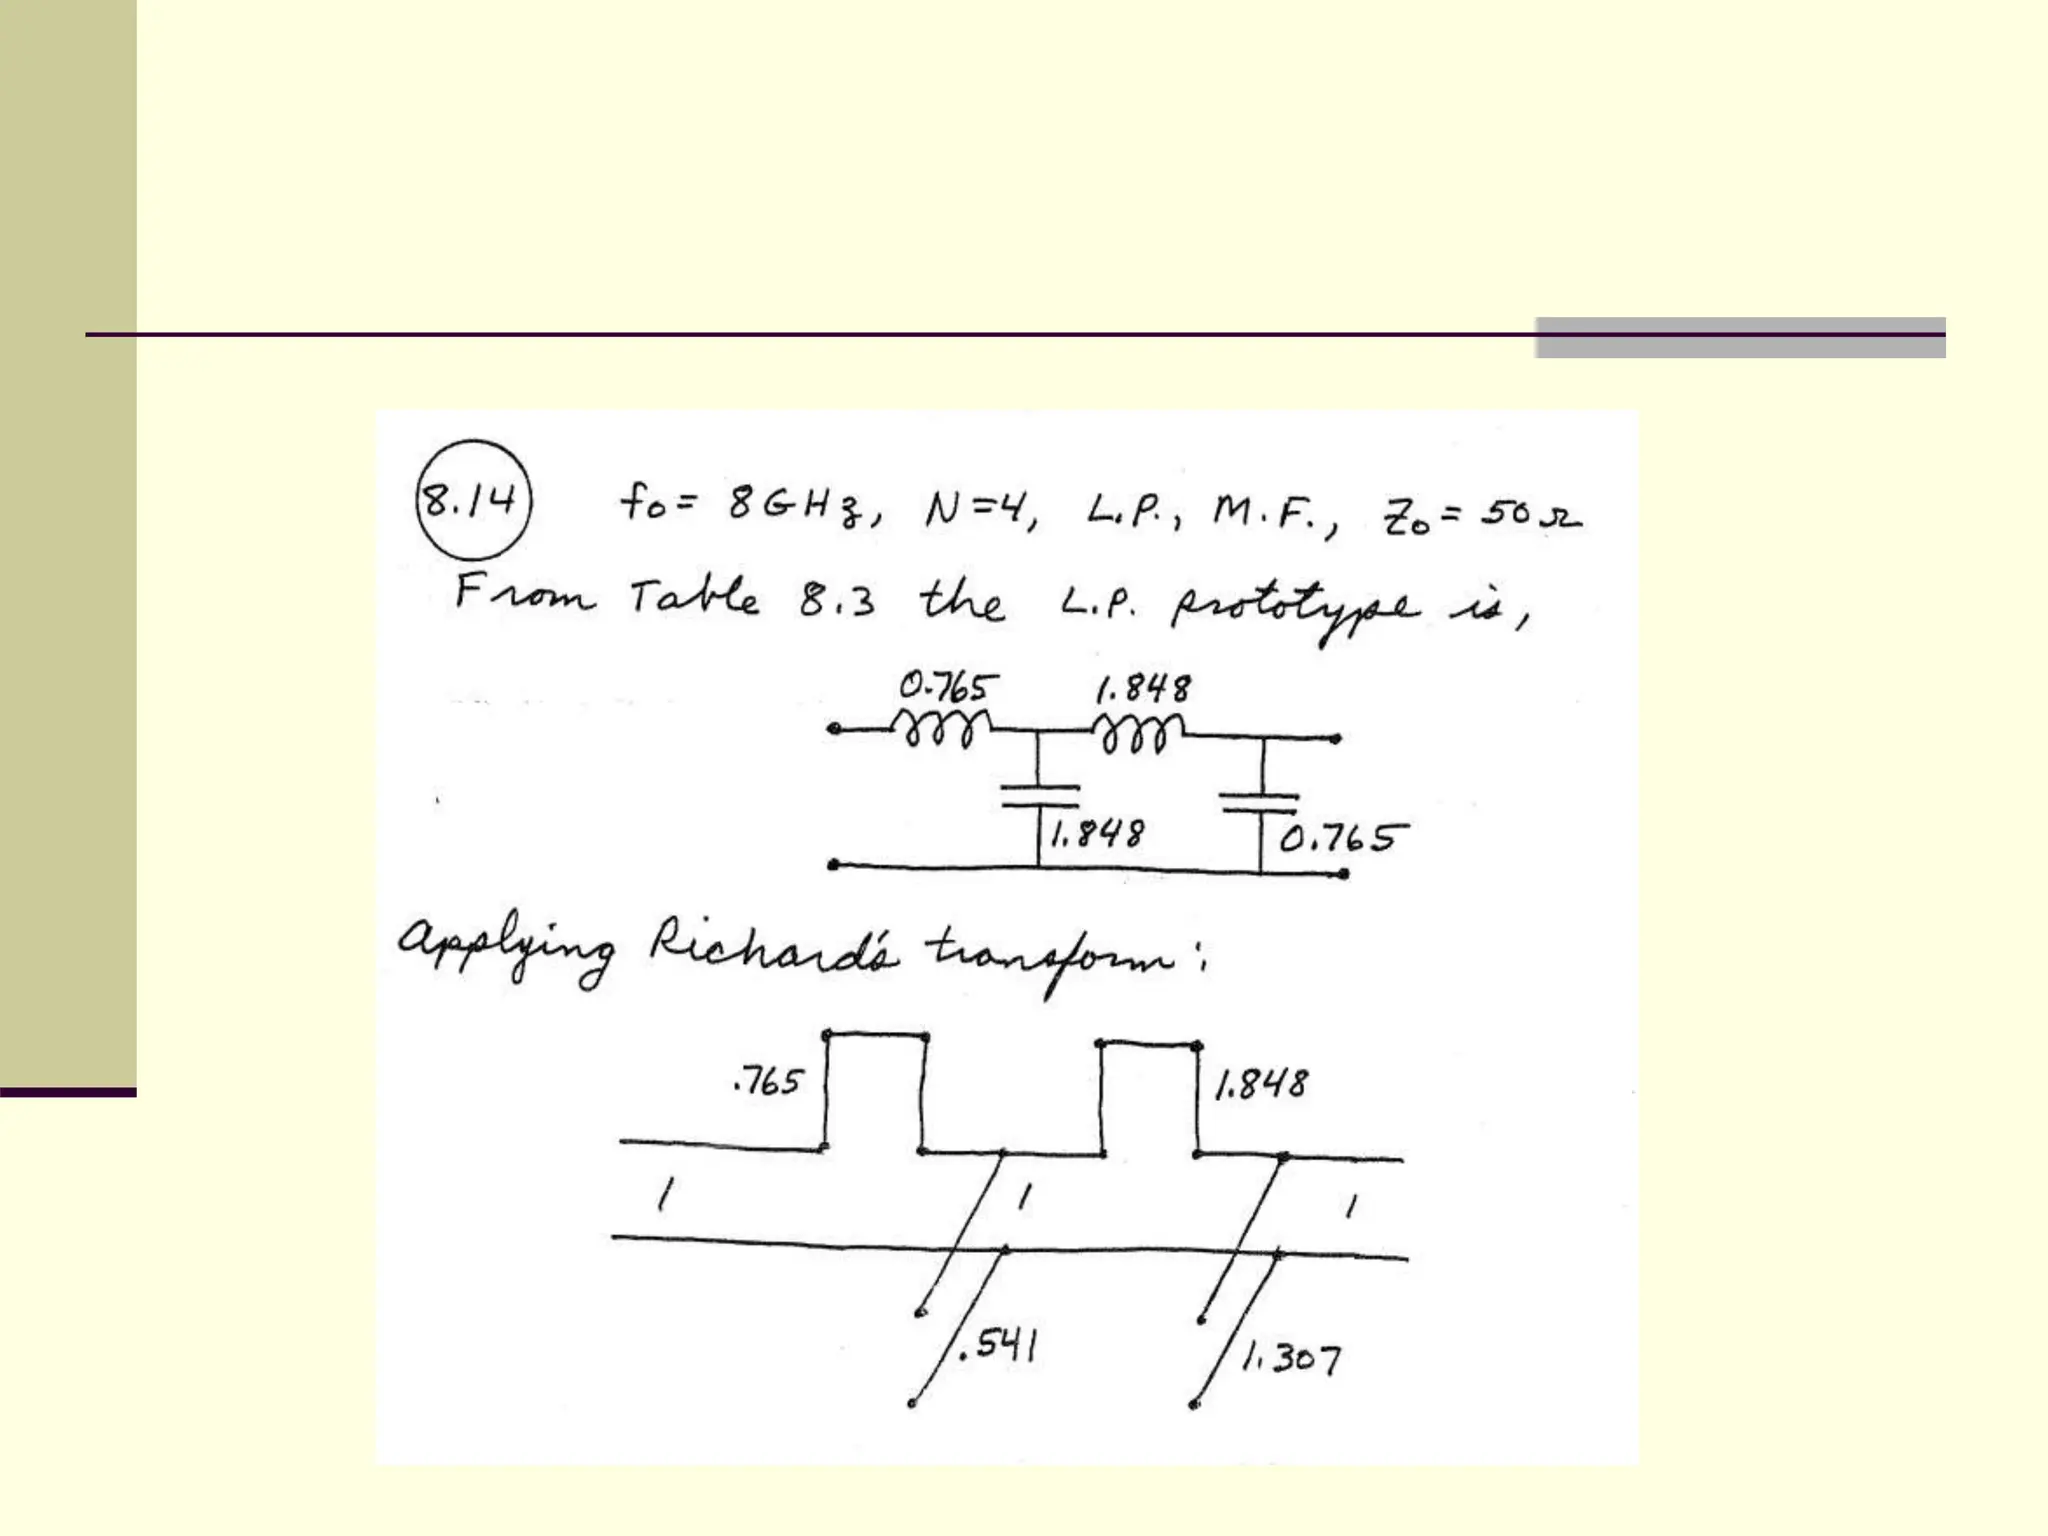 8.14 fo = 8GHz, N=4, L.P., M.F., Zo = 50Ω
From Table 8.3 the L.P. prototype is,
0.765 1.848
1.848 0.765
Applying Richard's transform:
.765 1.848
1 1 1
.541 1.307